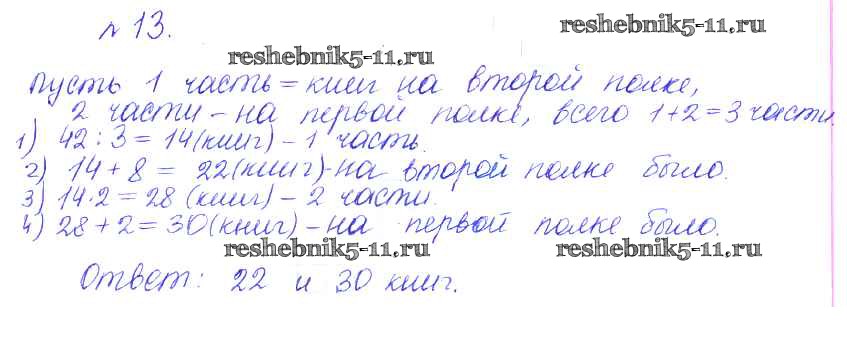 № 13.
reshebnik5-11.ru
reshebnik5-11.ru
Пусть 1 часть = книг на второй полке,
2 части - на первой полке, всего 1+2=3 части.
1) 42 : 3 = 14 (книг) - 1 часть.
2) 14 + 8 = 22 (книг) - на второй полке было.
3) 14·2 = 28 (книг) - 2 части.
4) 28 + 2 = 30 (книг) - на первой полке было.
reshebnik5-11.ru
reshebnik5-11.ru
Ответ: 22 и 30 книг.